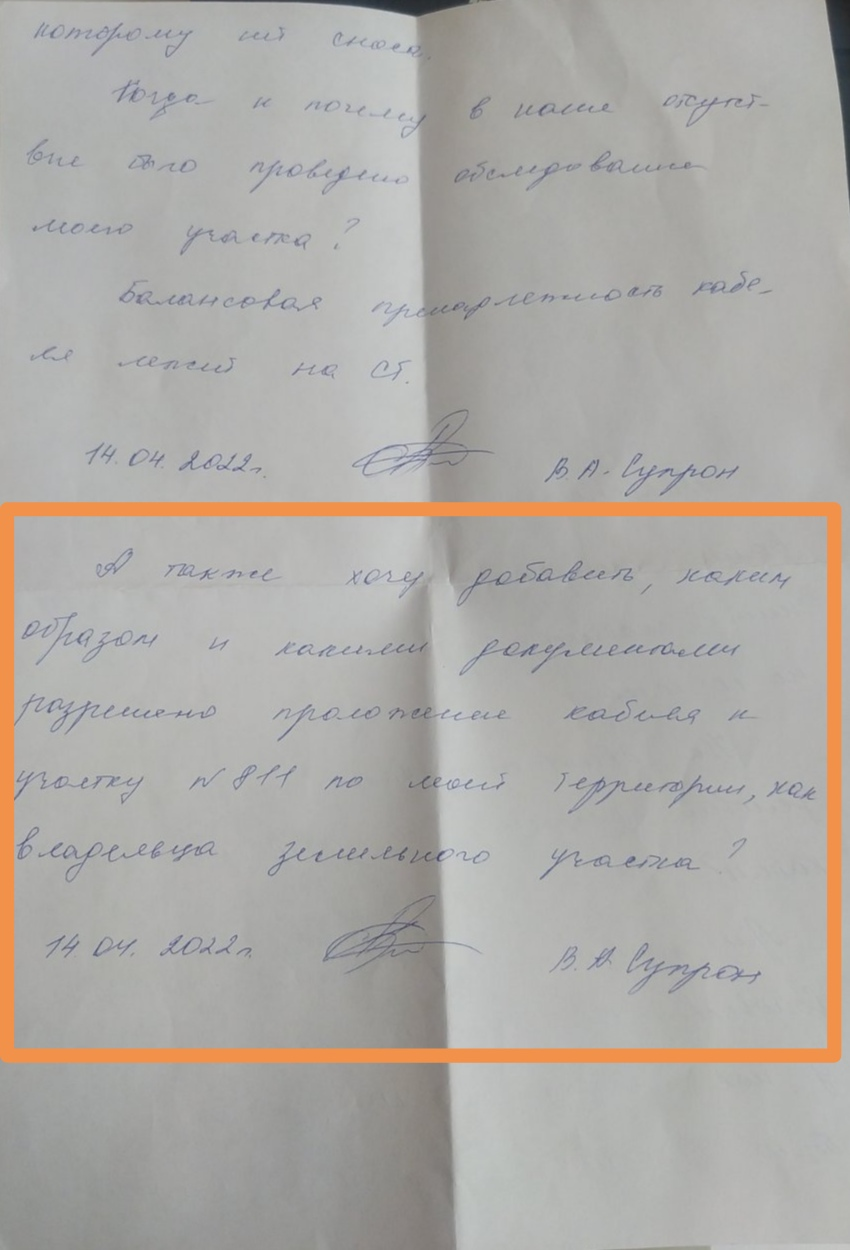 которому нет сноса.
Когда и почему в наше отсутст-
вие было проведено обследование
моего участка?
Балансовая принадлежность кабе-
ля лежит на СТ.
14.04.2022г. В.А. Супрон
А также хочу добавить, каким
образом и какими документами
разрешено проложение кабеля к
участку №811 по моей территории, как
владельца земельного участка?
14.04.2022г. В.А. Супрон